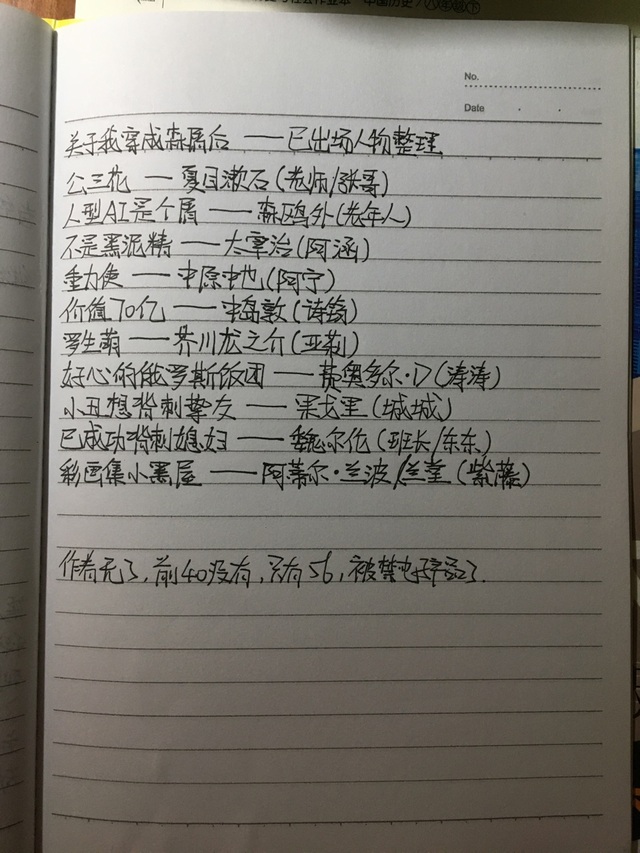 中国历史 八年级下
No.
Date
关于我穿成森屑后 —— 已出场人物整理
公三花 —— 夏目漱石(老师/张哥)
人型AI是个屑 —— 森鸥外(老年人)
不是黑泥精 —— 太宰治(阿涵)
重力使 —— 中原中也(阿宁)
价值70亿 —— 中岛敦(诗锦)
罗生萌 —— 芥川龙之介(亚莉)
好心的俄罗斯饭团 —— 费奥多尔·D(涛涛)
小丑想背刺挚友 —— 果戈里(城城)
已成功背刺媳妇 —— 魏尔伦(班长/东东)
彩画集小黑屋 —— 阿蒂尔·兰波/兰堂(紫藤)
作者无了,前40没有,只有56,被禁电子产品了.